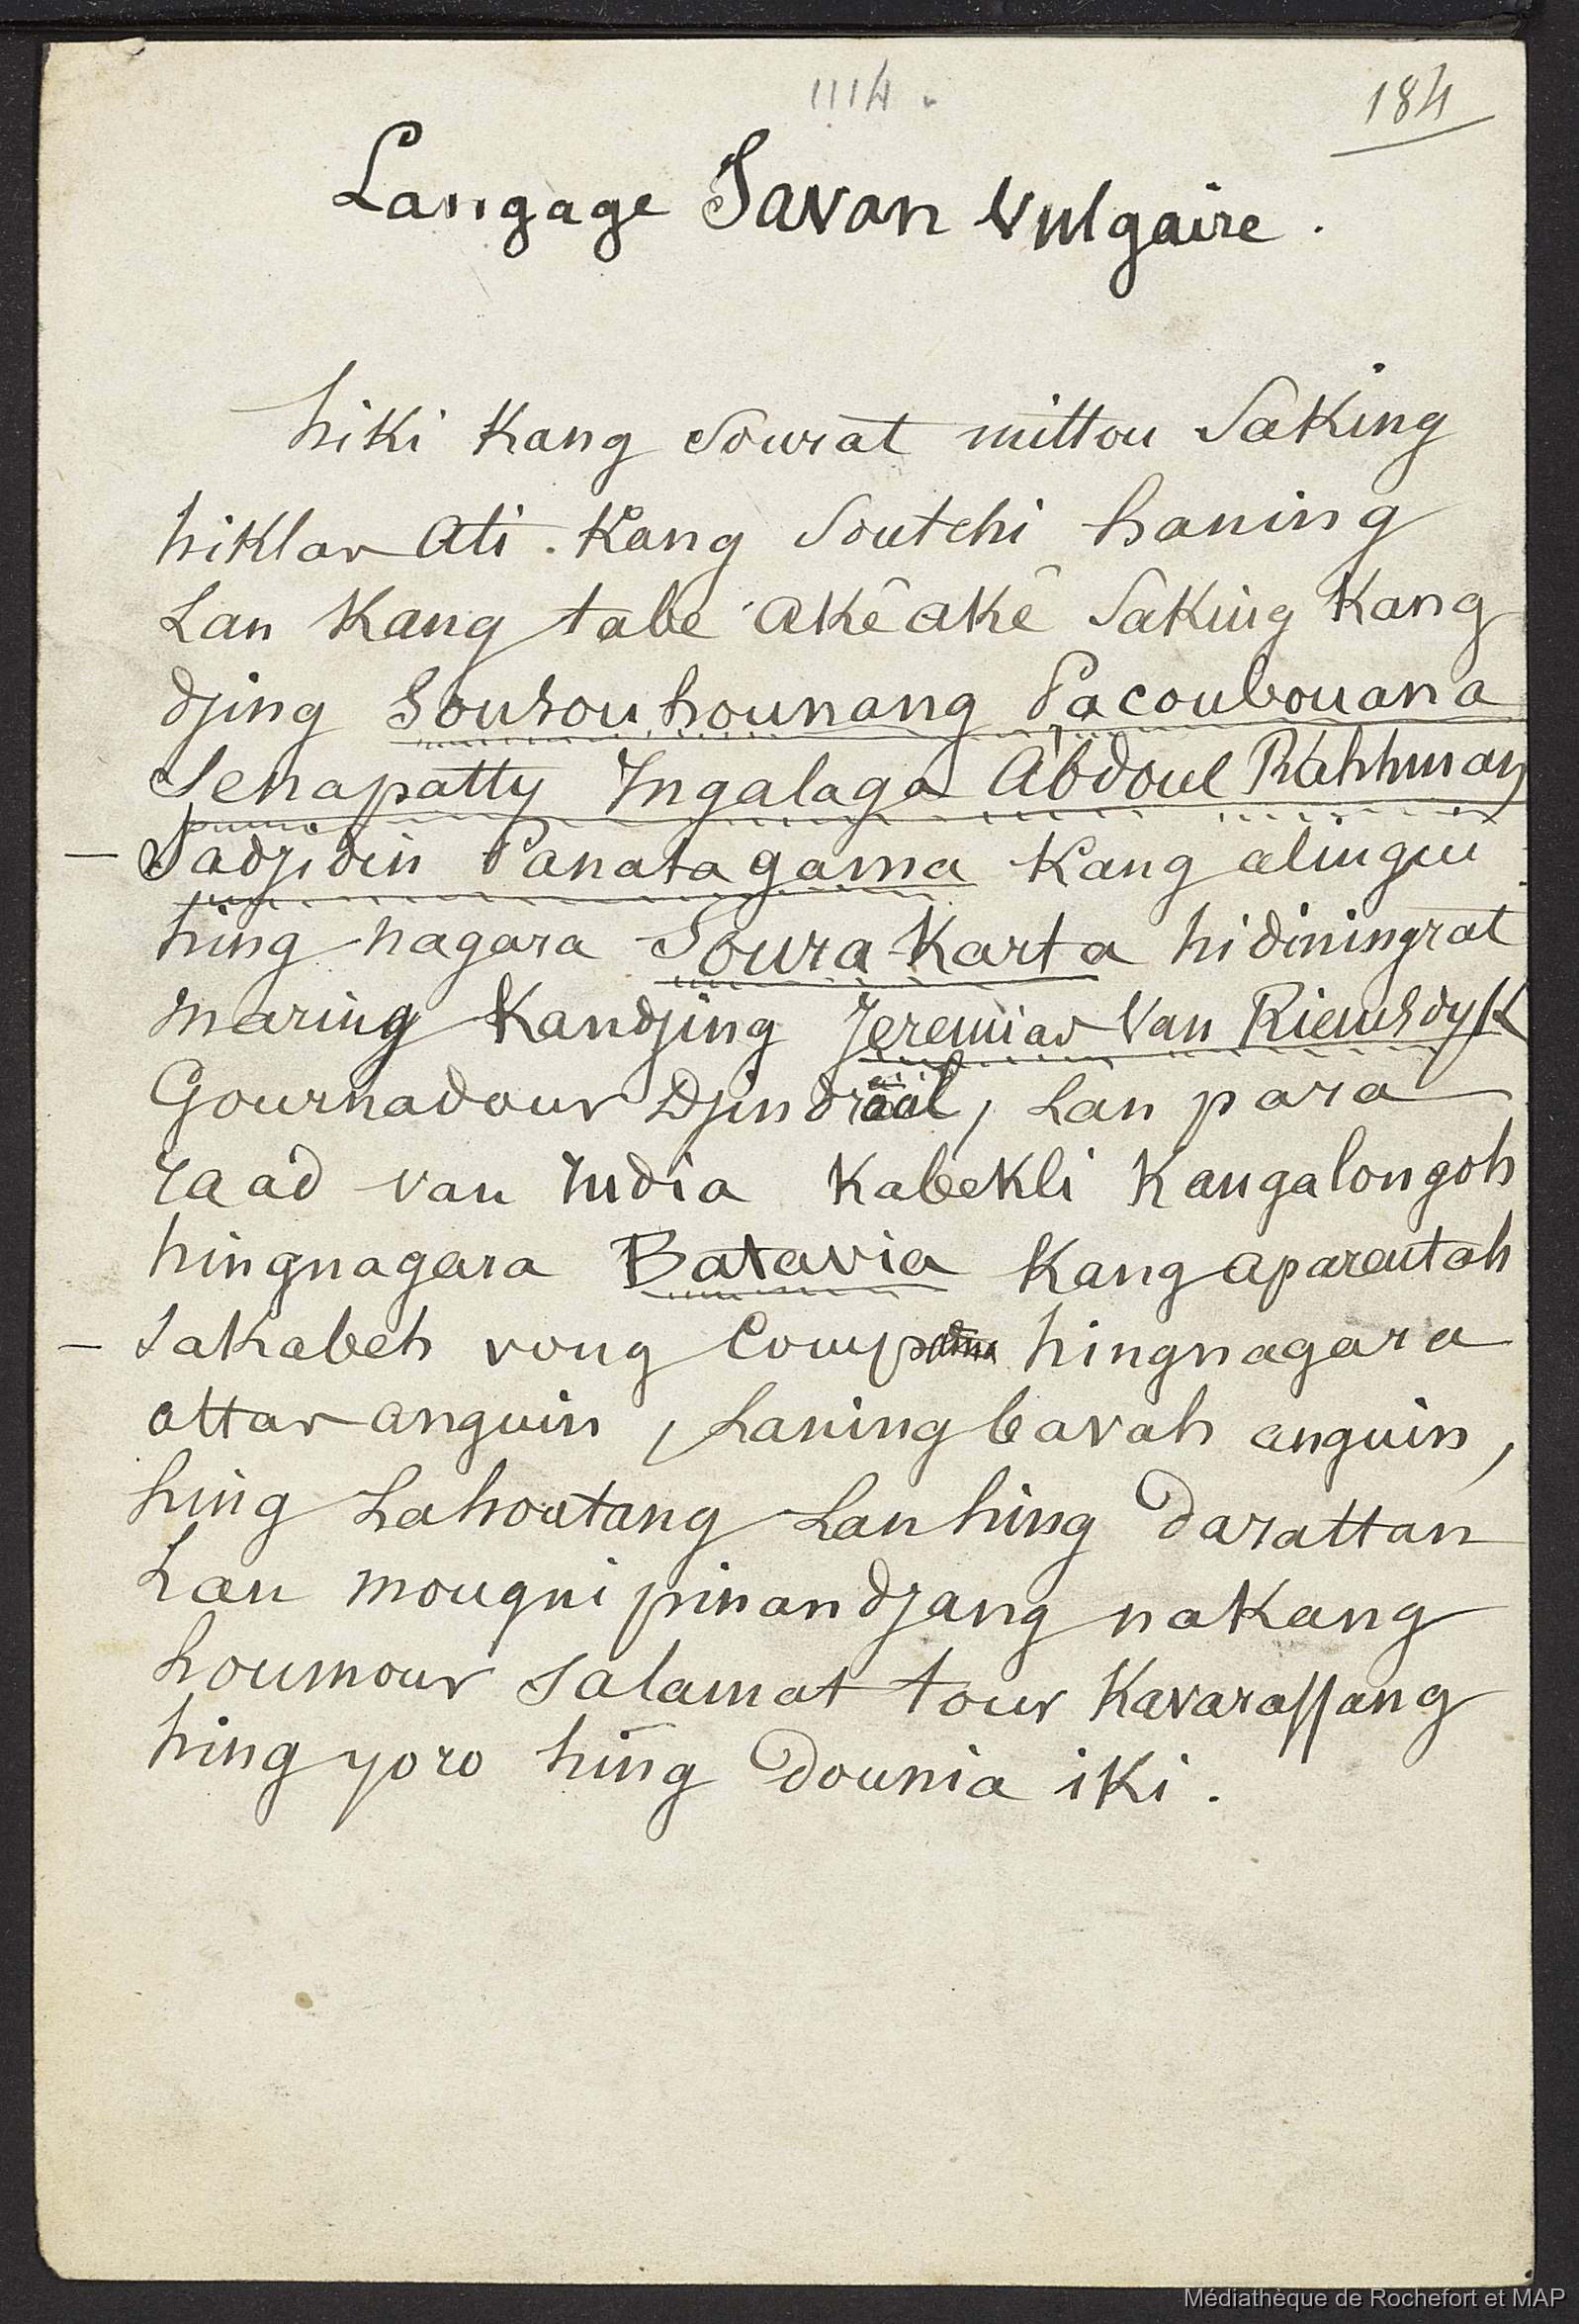 1114.
184
Langage Javan Vulgaire.
hiki Kang Sourat mittou Saking
hiklas Ati. Kang Soutchi haning
Lan Kang tabe akê akê Saking Kang
djing Sousouhounang Pacoubouana
Senapatty Ingalaga Abdoul Rahhman
— Sadjidin Panatagama Kang alingui
hing nagara Soura-Karta hidiningrat
maring Kandjing Jeremias Van Riemsdyk
Gournadour Djindraal, Lan para
raad van India Kabekli Kangalongoh
hingnagara Batavia Kang aparentah
— Sakabeh vong hingnagara
attas anguin, Laning bavah anguin,
hing Lahoutang Lan hing darattan
Lan mougni pinandjang nakang
houmour Salamat tour Kavarassang
hing yoro hing Dounia iki.
Médiathèque de Rochefort et MAP